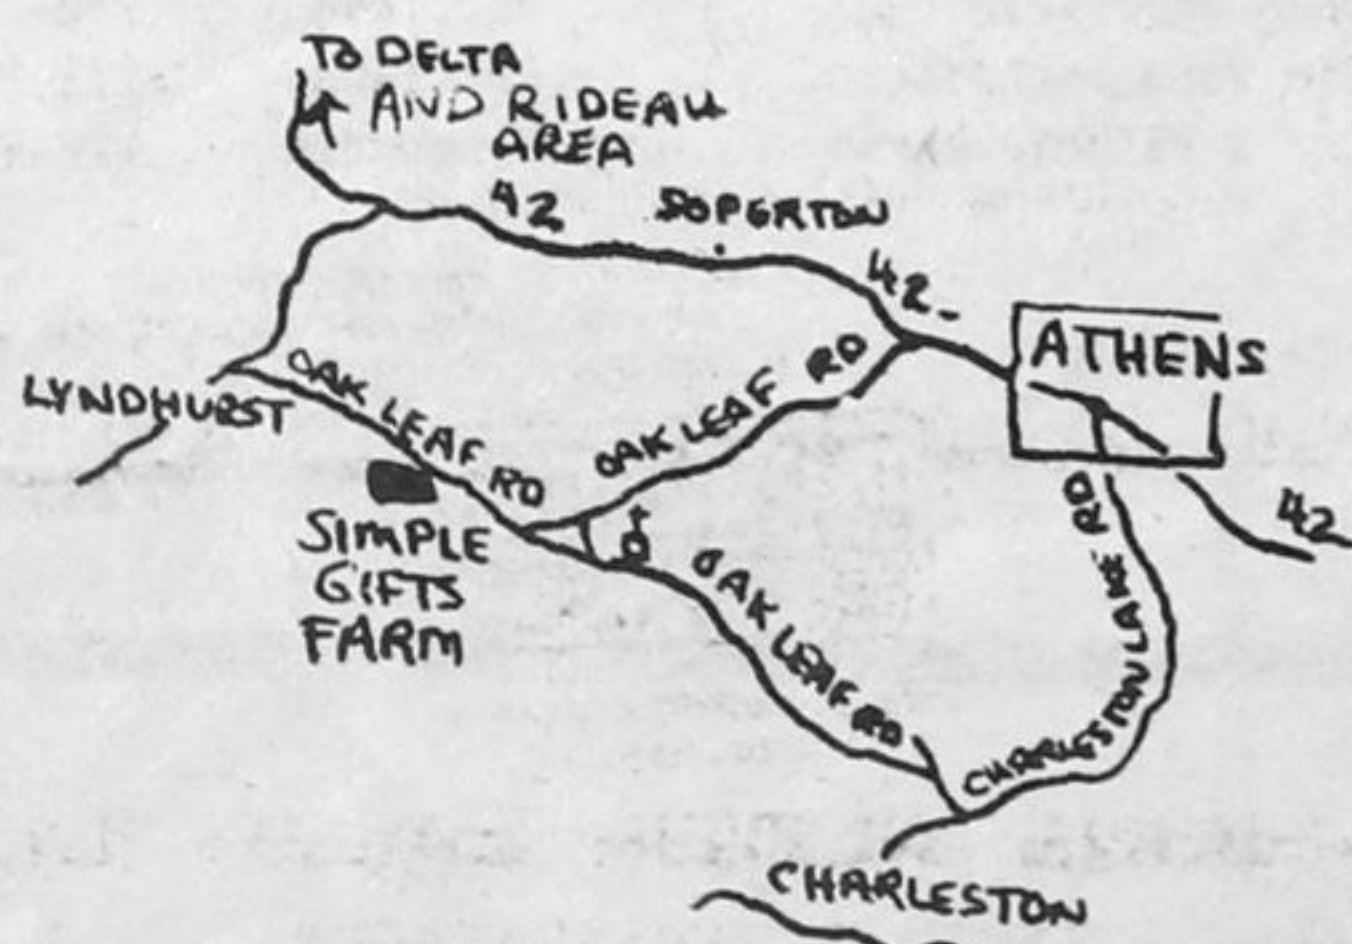 TO DELTA
AND RIDEAU
AREA
42
SOPERTON
42
ATHENS
OAK LEAF RD
OAK LEAF RD
LYNDHURST
SIMPLE
GIFTS
FARM
OAK LEAF RD
CHARLESTON LAKE RD
42
CHARLESTON